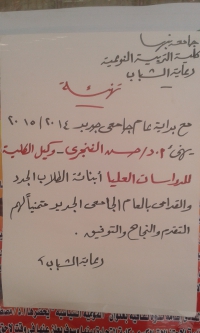 جامعة بنها
كلية التربية النوعية
رعاية الشباب
تهنئة
مع بداية عام جامعى جديد ٢٠١٤/٢٠١٥
يهنئ أ.د/ حسن الفنجرى - وكيل الكلية
للدراسات العليا أبنائه الطلاب الجدد
والقدامى بالعام الجامعى الجديد متمنياً لهم
التقدم والنجاح والتوفيق.
رعاية الشباب